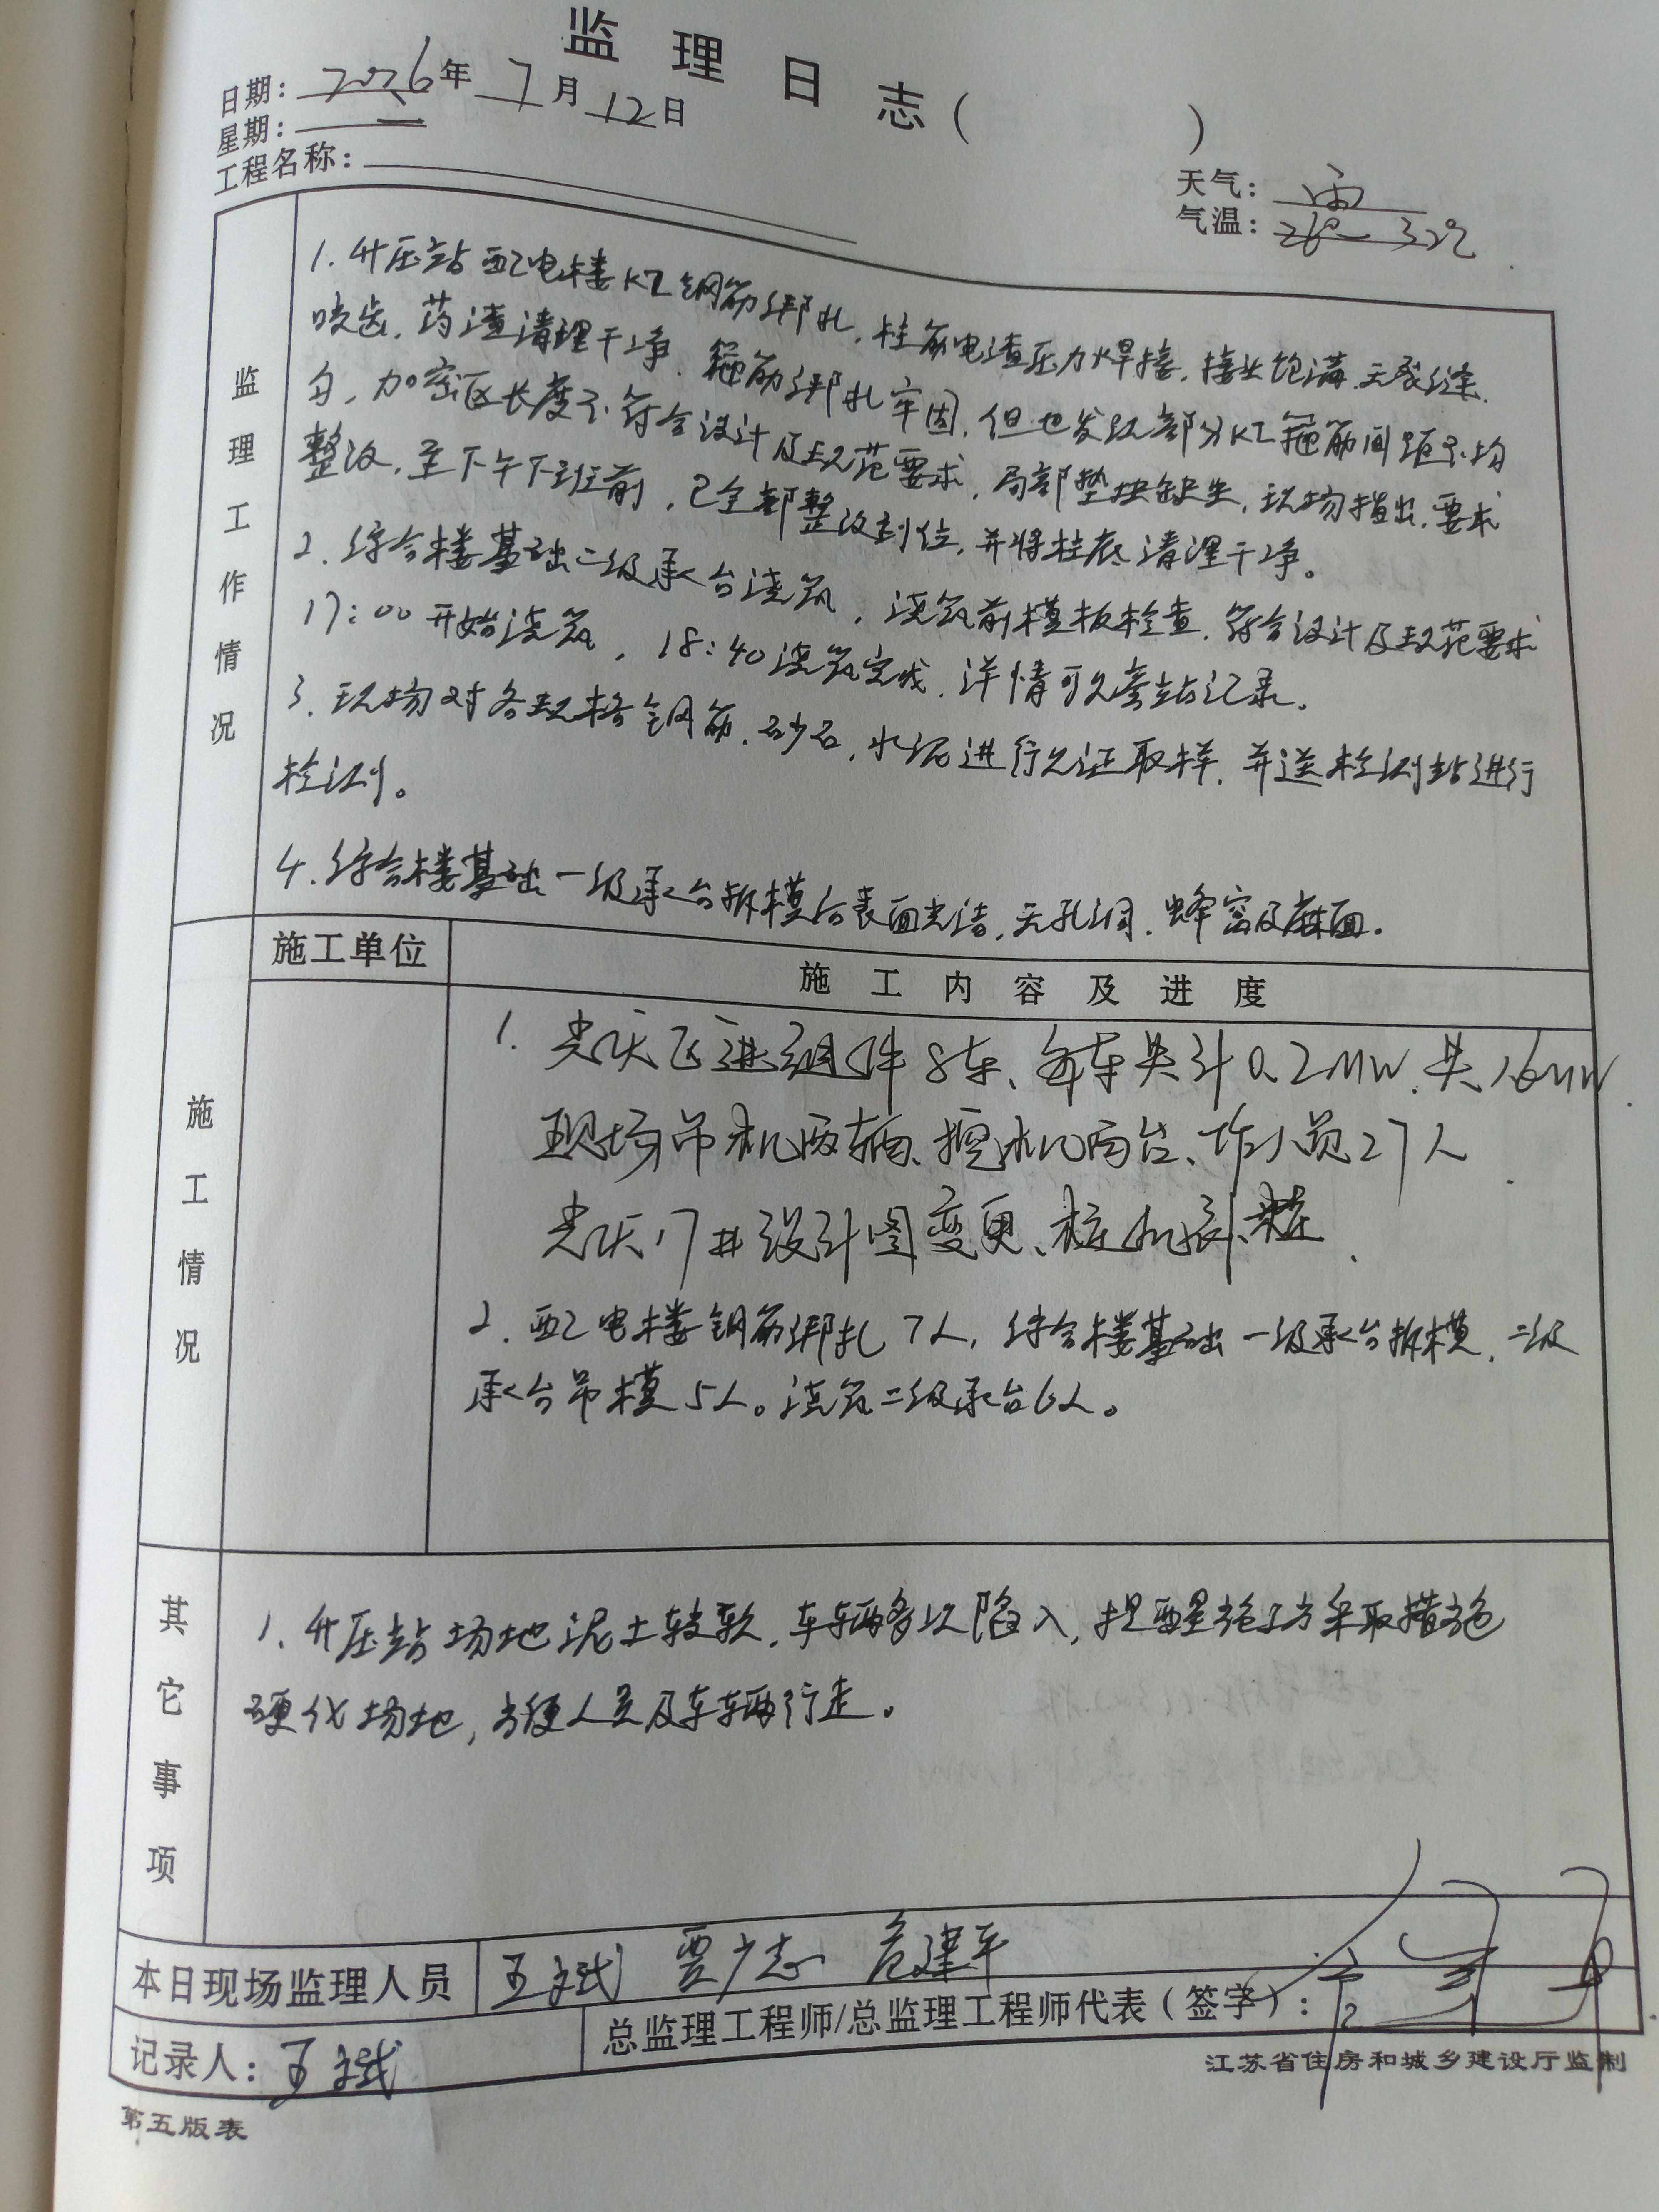 监理日志（　　）
日期：2026年7月12日
星期：二
工程名称：
天气：雨
气温：26°—32℃
监理工作情况
1.升压站配电楼KZ钢筋绑扎，柱筋电渣压力焊接，接头饱满、无裂缝、
咬齿，药渣清理干净，箍筋绑扎牢固，但也发现部分KZ箍筋间距不均
匀，加密区长度不符合设计及规范要求，局部垫块缺失，现场指出，要求
整改，至下午下班前，已全部整改到位，并将柱底清理干净。
2.综合楼基础二级承台浇筑，浇筑前模板检查，符合设计及规范要求
17:00开始浇筑，18:40浇筑完成，详情可见旁站记录。
3.现场对各规格钢筋、砂石，水泥进行见证取样，并送检测站进行
检测。
4.综合楼基础一级承台拆模后表面光洁，无孔洞、蜂窝及麻面。
施工情况
施工单位
施工内容及进度
1.光伏区进组件8车、每车共计0.2MW，共1.6MW
现场吊机两辆、挖机两台、作人员27人
光伏17#设计图变更、桩机桩
2.配电楼钢筋绑扎7人，综合楼基础一级承台拆模、二级
承台吊模5人。浇筑二级承台6人。
其它事项
1、升压站场地泥土较软，车辆多次陷入，提醒施工方采取措施
硬化场地，方便人员及车辆行走。
本日现场监理人员
王斌 贾少志 危建平
记录人：王斌
总监理工程师/总监理工程师代表（签字）：
江苏省住房和城乡建设厅监制
第五版表